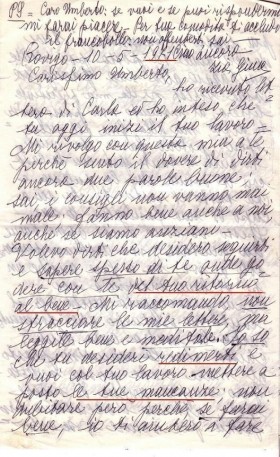 PS = Caro Umberto: se vuoi e se puoi rispondermi
mi farai piacere - Per tua comodità ti accludo
il francobollo;
Rovigo - 10 - 5 - ancora
Carissimo Umberto, zia Gina
ho ricevuto let
tera di Carla ed ho inteso, che
tu oggi inizi il tuo lavoro -
Mi rivolgo con questa mia a te
perchè sento il dovere di dirti
ancora due parole buone;
sai, i consigli non vanno mai
male. Fanno bene anche a noi
anche se siamo anziani -
Volevo dirti, che desidero seguirti
e sapere spesso di te onde go
dere con te del tuo ritorno
al bene. Mi raccomando non
stracciare le mie lettere, ma
leggile bene e meditale. Io so
che tu desideri redimerti e
puoi col tuo lavoro mettere a
posto le tue mancanze; non
dubitare però perchè, se farai
bene, io ti aiuterò a fare